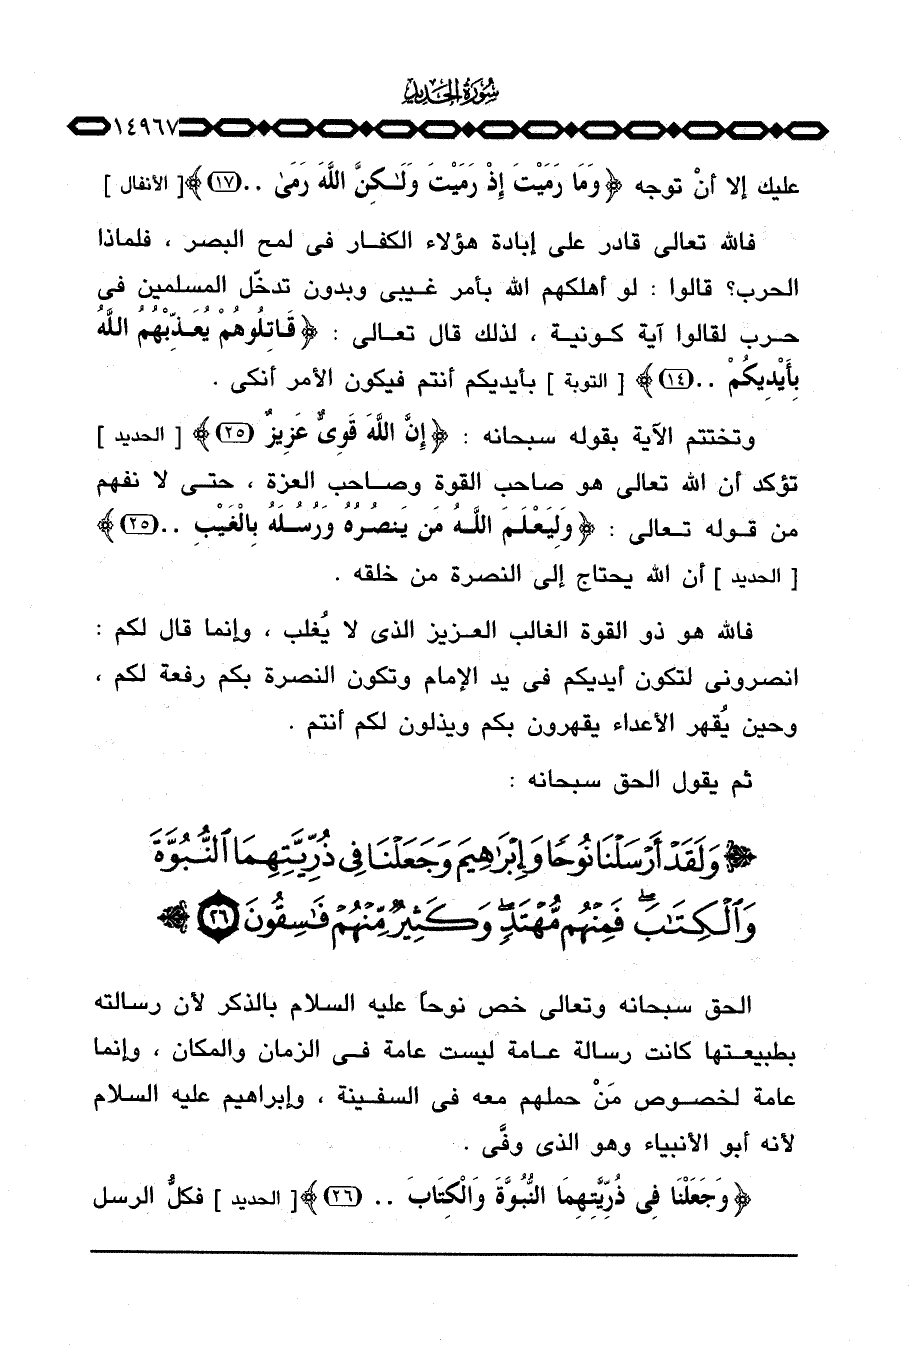 سُورَةُ الحَديد
١٤٩٦٧
عليك إلا أنْ توجه ﴿وَمَا رَمَيْتَ إِذْ رَمَيْتَ وَلَـٰكِنَّ اللَّهَ رَمَىٰ .. (١٧)﴾ [ الأنفال ]
فالله تعالى قادر على إبادة هؤلاء الكفار فى لمح البصر ، فلماذا
الحرب؟ قالوا : لو أهلكهم الله بأمر غيبى وبدون تدخّل المسلمين فى
حرب لقالوا آية كونية ، لذلك قال تعالى : ﴿قَاتِلُوهُمْ يُعَذِّبْهُمُ اللَّهُ
بِأَيْدِيكُمْ .. (١٤)﴾ [ التوبة ] بأيديكم أنتم فيكون الأمر أنكى .
وتختتم الآية بقوله سبحانه : ﴿إِنَّ اللَّهَ قَوِىٌّ عَزِيزٌ (٢٥)﴾ [ الحديد ]
تؤكد أن الله تعالى هو صاحب القوة وصاحب العزة ، حتى لا نفهم
من قوله تعالى : ﴿وَلِيَعْلَمَ اللَّهُ مَن يَنصُرُهُ وَرُسُلَهُ بِالْغَيْبِ .. (٢٥)﴾
[ الحديد ] أن الله يحتاج إلى النصرة من خلقه .
فالله هو ذو القوة الغالب العزيز الذى لا يُغلب ، وإنما قال لكم :
انصرونى لتكون أيديكم فى يد الإمام وتكون النصرة بكم رفعة لكم ،
وحين يُقهر الأعداء يقهرون بكم ويذلون لكم أنتم .
ثم يقول الحق سبحانه :
﴿وَلَقَدْ أَرْسَلْنَا نُوحًا وَإِبْرَٰهِيمَ وَجَعَلْنَا فِى ذُرِّيَّتِهِمَا ٱلنُّبُوَّةَ
وَٱلْكِتَٰبَۖ فَمِنْهُم مُّهْتَدٍۖ وَكَثِيرٌ مِّنْهُمْ فَٰسِقُونَ (٢٦)﴾
الحق سبحانه وتعالى خص نوحاً عليه السلام بالذكر لأن رسالته
بطبيعتها كانت رسالة عامة ليست عامة فى الزمان والمكان ، وإنما
عامة لخصوص مَنْ حملهم معه فى السفينة ، وإبراهيم عليه السلام
لأنه أبو الأنبياء وهو الذى وفَّى .
﴿وَجَعَلْنَا فِى ذُرِّيَّتِهِمَا النُّبُوَّةَ وَالْكِتَابَ .. (٢٦)﴾ [ الحديد ] فكلُّ الرسل